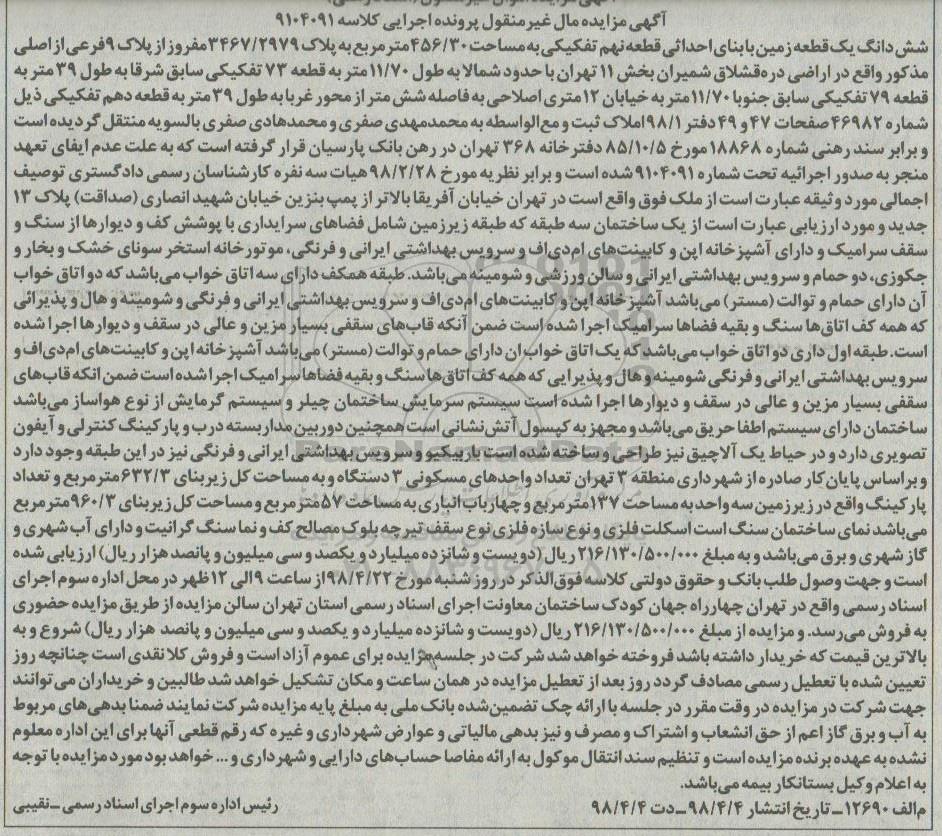 آگهی مزایده مال غیر منقول پرونده اجرایی کلاسه ۹۱۰۴۰۹۱
شش دانگ یک قطعه زمین با بنای احداثی قطعه نهم تفکیکی به مساحت ۴۵۶/۳۰ متر مربع به پلاک ۳۴۶۷/۲۹۷۹ مفروز از پلاک ۹ فرعی از اصلی
مذکور واقع در اراضی دره قشلاق شمیران بخش ۱۱ تهران با حدود شمالا به طول ۱۱/۷۰ متر به قطعه ۷۳ تفکیکی سابق شرقا به طول ۳۹ متر به
قطعه ۷۹ تفکیکی سابق جنوبا ۱۱/۷۰ متر به خیابان ۱۲ متری اصلاحی به فاصله شش متر از محور غربا به طول ۳۹ متر به قطعه دهم تفکیکی ذیل
شماره ۴۶۹۸۲ صفحات ۴۷ و ۴۹ دفتر ۹۸/۱ املاک ثبت و مع الواسطه به محمدمهدی صفری و محمدهادی صفری بالسویه منتقل گردیده است
و برابر سند رهنی شماره ۱۸۸۶۸ مورخ ۸۵/۱۰/۵ دفترخانه ۳۶۸ تهران در رهن بانک پارسیان قرار گرفته است که به علت عدم ایفای تعهد
منجر به صدور اجرائیه تحت شماره ۹۱۰۴۰۹۱ شده است و برابر نظریه مورخ ۹۸/۲/۲۸ هیات سه نفره کارشناسان رسمی دادگستری توصیف
اجمالی مورد وثیقه عبارت است از ملک فوق واقع است در تهران خیابان آفریقا بالاتر از پمپ بنزین خیابان شهید انصاری (صداقت) پلاک ۱۳
جدید و مورد ارزیابی عبارت است از یک ساختمان سه طبقه که طبقه زیرزمین شامل فضاهای سرایداری با پوشش کف و دیوارها از سنگ و
سقف سرامیک و دارای آشپزخانه اپن و کابینت‌های ام‌دی‌اف و سرویس بهداشتی ایرانی و فرنگی، موتورخانه استخر سونای خشک و بخار و
جکوزی، دو حمام و سرویس بهداشتی ایرانی و سالن ورزشی و شومینه می‌باشد. طبقه همکف دارای سه اتاق خواب می‌باشد که دو اتاق خواب
آن دارای حمام و توالت (مستر) می‌باشد آشپزخانه اپن و کابینت‌های ام‌دی‌اف و سرویس بهداشتی ایرانی و فرنگی و شومینه و هال و پذیرائی
که همه کف اتاق‌ها سنگ و بقیه فضاها سرامیک اجرا شده است ضمن آنکه قاب‌های سقفی بسیار مزین و عالی در سقف و دیوارها اجرا شده
است. طبقه اول داری دو اتاق خواب می‌باشد که یک اتاق خواب ان دارای حمام و توالت (مستر) می‌باشد آشپزخانه اپن و کابینت‌های ام‌دی‌اف و
سرویس بهداشتی ایرانی و فرنگی شومینه و هال و پذیرایی که همه کف اتاق‌ها سنگ و بقیه فضاها سرامیک اجرا شده است ضمن انکه قاب‌های
سقفی بسیار مزین و عالی در سقف و دیوارها اجرا شده است سیستم سرمایش ساختمان چیلر و سیستم گرمایش از نوع هواساز می‌باشد
ساختمان دارای سیستم اطفا حریق می‌باشد و مجهز به کپسول آتش نشانی است همچنین دوربین مداربسته درب و پارکینگ کنترلی و آیفون
تصویری دارد و در حیاط یک آلاچیق نیز طراحی و ساخته شده است باربیکیو و سرویس بهداشتی ایرانی و فرنگی نیز در این طبقه وجود دارد
و براساس پایان کار صادره از شهرداری منطقه ۳ تهران تعداد واحدهای مسکونی ۳ دستگاه و به مساحت کل زیربنای ۶۳۲/۳ متر مربع و تعداد
پارکینگ واقع در زیرزمین سه واحد به مساحت ۱۳۷ متر مربع و چهار باب انباری به مساحت ۵۷ متر مربع و مساحت کل زیربنای ۹۶۰/۳ متر مربع
می‌باشد نمای ساختمان سنگ است اسکلت فلزی و نوع سازه فلزی نوع سقف تیرچه بلوک مصالح کف و نما سنگ گرانیت و دارای آب شهری و
گاز شهری و برق می‌باشد و به مبلغ ۲۱۶/۱۳۰/۵۰۰/۰۰۰ ریال (دویست و شانزده میلیارد و یکصد و سی میلیون و پانصد هزار ریال) ارزیابی شده
است و جهت وصول طلب بانک و حقوق دولتی کلاسه فوق‌الذکر در روز شنبه مورخ ۹۸/۴/۲۲ از ساعت ۹ الی ۱۲ ظهر در محل اداره سوم اجرای
اسناد رسمی واقع در تهران چهارراه جهان کودک ساختمان معاونت اجرای اسناد رسمی استان تهران سالن مزایده از طریق مزایده حضوری
به فروش می‌رسد. و مزایده از مبلغ ۲۱۶/۱۳۰/۵۰۰/۰۰۰ ریال (دویست و شانزده میلیارد و یکصد و سی میلیون و پانصد هزار ریال) شروع و به
بالاترین قیمت که خریدار داشته باشد فروخته خواهد شد شرکت در جلسه مزایده برای عموم آزاد است و فروش کلا نقدی است چنانچه روز
تعیین شده با تعطیل رسمی مصادف گردد روز بعد از تعطیل مزایده در همان ساعت و مکان تشکیل خواهد شد طالبین و خریداران می‌توانند
جهت شرکت در مزایده در وقت مقرر در جلسه با ارائه چک تضمین‌شده بانک ملی به مبلغ پایه مزایده شرکت نمایند ضمنا بدهی‌های مربوط
به آب و برق گاز اعم از حق انشعاب و اشتراک و مصرف و نیز بدهی مالیاتی و عوارض شهرداری و غیره که رقم قطعی آنها برای این اداره معلوم
نشده به عهده برنده مزایده است و تنظیم سند انتقال موکول به ارائه مفاصا حساب‌های دارایی و شهرداری و ... خواهد بود مورد مزایده با توجه
به اعلام وکیل بستانکار بیمه می‌باشد.
م الف ۱۲۶۹۰ ـ تاریخ انتشار ۹۸/۴/۴ ـ دت ۹۸/۴/۴ رئیس اداره سوم اجرای اسناد رسمی ـ نقیبی